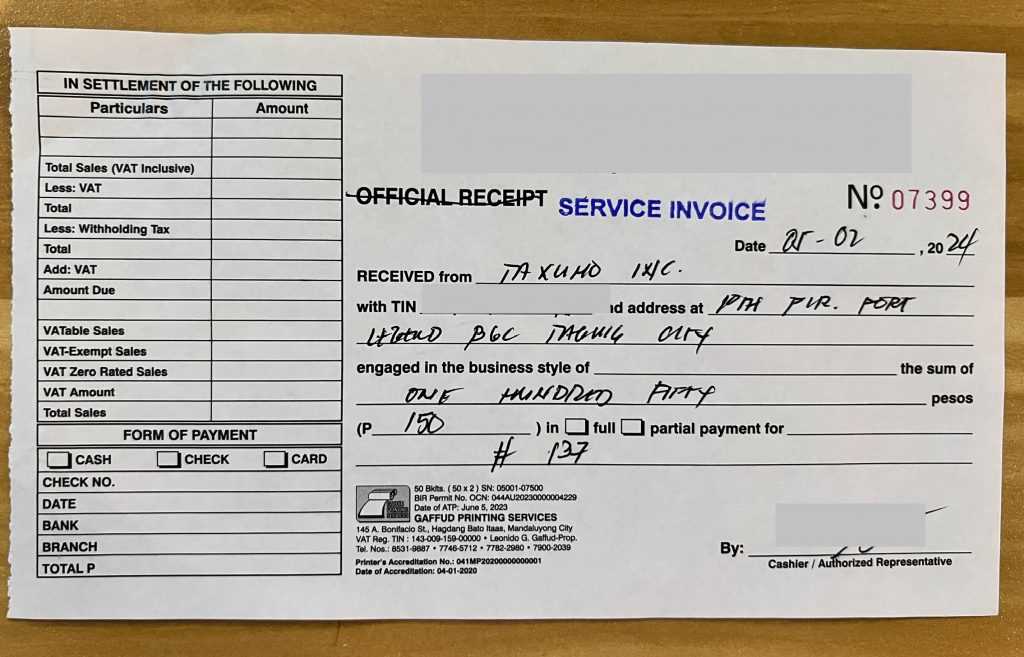 IN SETTLEMENT OF THE FOLLOWING
Particulars Amount
Total Sales (VAT Inclusive)
Less: VAT
Total
Less: Withholding Tax
Total
Add: VAT
Amount Due
VATable Sales
VAT-Exempt Sales
VAT Zero Rated Sales
VAT Amount
Total Sales
FORM OF PAYMENT
CASH CHECK CARD
CHECK NO.
DATE
BANK
BRANCH
TOTAL P
OFFICIAL RECEIPT SERVICE INVOICE Nº 07399
Date 25-02, 2024
RECEIVED from TAXUMO INC.
with TIN nd address at FLR. FORT
LEGEND BGC TAGUIG CITY
engaged in the business style of the sum of
ONE HUNDRED FIFTY pesos
(P 150 ) in full partial payment for
# 137
50 Bklts. ( 50 x 2 ) SN: 05001-07500
BIR Permit No. OCN: 044AU20230000004229
Date of ATP: June 5, 2023
GAFFUD PRINTING SERVICES
145 A. Bonifacio St., Hagdang Bato Itaas, Mandaluyong City
VAT Reg. TIN : 143-009-159-00000 • Leonido G. Gaffud-Prop.
Tel. Nos.: 8531-9887 • 7746-5712 • 7782-2980 • 7900-2039
Printer's Accreditation No.: 041MP20200000000001
Date of Accreditation: 04-01-2020
By:
Cashier / Authorized Representative